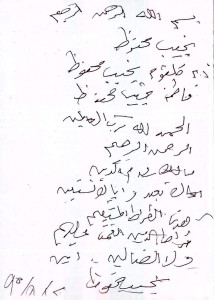 بسم الله الرحمن الرحيم
نجيب محفوظ
أم كلثوم نجيب محفوظ
فاطمة نجيب محفوظ
الحمد لله رب العالمين
الرحمن الرحيم
مالك يوم الدين
إياك نعبد وإياك نستعين
اهدنا الصراط المستقيم
صراط الذين أنعمت عليهم
ولا الضالين . آمين
نجيب محفوظ